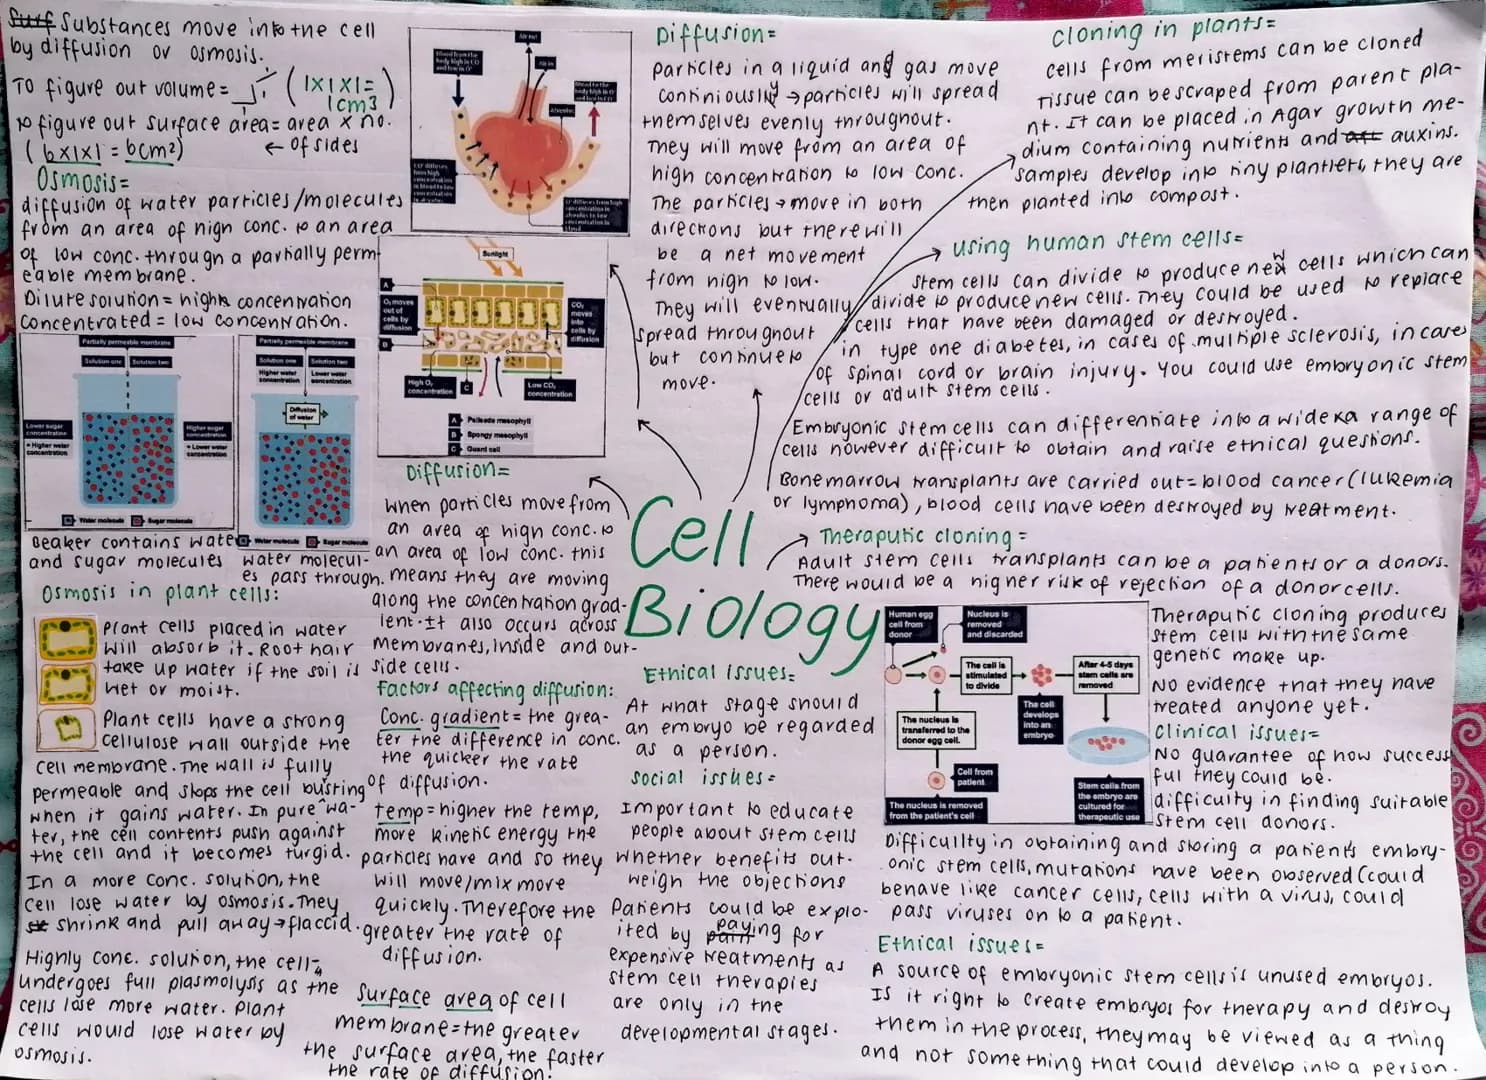 Substances move into the cell
by diffusion or osmosis.
To figure out volume = (1x1x1=
1cm3)
to figure out surface area = area x no.
(6x1x1 = 6cm²) ← of sides
Osmosis=
diffusion of water particles/molecules
from an area of high conc. to an area
of low conc. through a partially perm-
eable membrane.
Dilute solution = high concentration
concentrated = low concentration.
Partially permeable membrane
Solution one
Solution two
Lower sugar
concentration
= Higher water
concentration
Higher sugar
concentration
= Lower water
concentration
Water molecule
Sugar molecule
Partially permeable membrane
Solution one
Higher water
concentration
Solution two
Lower water
concentration
Diffusion
of water
Water molecule
Sugar molecule
Beaker contains water
and sugar molecules
water molecul-
es pass through.
Osmosis in plant cells:
Plant cells placed in water
will absorb it. Root hair
take up water if the soil is
wet or moist.
Plant cells have a strong
cellulose wall outside the
cell membrane. The wall is fully
permeable and stops the cell bursting
when it gains water. In pure wa-
ter, the cell contents push against
the cell and it becomes turgid.
In a more conc. solution, the
cell lose water by osmosis. They
shrink and pull away → flaccid.
Highly conc. solution, the cell
undergoes full plasmolysis as the
cells lose more water. Plant
cells would lose water by
osmosis.
Air out
Air in
Alveolus
Sunlight
A
O₂ moves
out of
cells by
diffusion
B
CO₂
moves
into
cells by
diffusion
High O₂
concentration
C
Low CO₂
concentration
A Palisade mesophyll
B Spongy mesophyll
C Guard cell
Diffusion=
when particles move from
an area of high conc. to
an area of low conc. this
means they are moving
along the concentration grad-
ient. It also occurs across
membranes, inside and out-
side cells.
Factors affecting diffusion:
Conc. gradient = the grea-
ter the difference in conc.
the quicker the rate
of diffusion.
Temp = higher the temp,
more kinetic energy the
particles have and so they
will move/mix more
quickly. Therefore the
greater the rate of
diffusion.
Surface area of cell
membrane = the greater
the surface area, the faster
the rate of diffusion.
Diffusion=
particles in a liquid and gas move
continiously → particles will spread
themselves evenly throughout.
They will move from an area of
high concentration to low conc.
The particles → move in both
directions but there will
be a net movement
from high to low.
They will eventually
spread throughout
but continue to
move.
Cell
Biology
Ethical issues=
At what stage should
an embryo be regarded
as a person.
social issues=
Important to educate
people about stem cells
whether benefits out-
weigh the objections
Patients could be explo-
ited by paying for
expensive treatments as
stem cell therapies
are only in the
developmental stages.
cloning in plants=
cells from meristems can be cloned
Tissue can be scraped from parent pla-
nt. It can be placed in Agar growth me-
dium containing nutrients and auxins.
samples develop into tiny plantlets, they are
then planted into compost.
using human stem cells=
stem cells can divide to produce new cells which can
divide to produce new cells. They could be used to replace
cells that have been damaged or destroyed.
in type one diabetes, in cases of multiple sclerosis, in cares
of spinal cord or brain injury. You could use embryonic stem
cells or adult stem cells.
Embryonic stem cells can differentiate into a wide range of
cells however difficult to obtain and raise ethical questions.
Bone marrow transplants are carried out = blood cancer (lukemia
or lymphoma), blood cells have been destroyed by treatment.
Theraputic cloning=
Adult stem cells transplants can be a patients or a donors.
There would be a higher risk of rejection of a donor cells.
Human egg
cell from
donor
Nucleus is
removed
and discarded
The cell is
stimulated
to divide
After 4-5 days
stem cells are
removed
The nucleus is
transferred to the
donor egg cell.
The cell
develops
into an
embryo
Cell from
patient
The nucleus is removed
from the patient's cell
Stem cells from
the embryo are
cultured for
therapeutic use
Theraputic cloning produces
stem cells with the same
genetic make up.
No evidence that they have
treated anyone yet.
Clinical issues=
No guarantee of how success
ful they could be.
difficulty in finding suitable
stem cell donors.
Difficulty in obtaining and storing a patients embry-
onic stem cells, mutations have been observed (could
behave like cancer cells, cells with a virus, could
pass viruses on to a patient.
Ethical issues=
A source of embryonic stem cells is unused embryos.
Is it right to create embryos for therapy and destroy
them in the process, they may be viewed as a thing
and not something that could develop into a person.